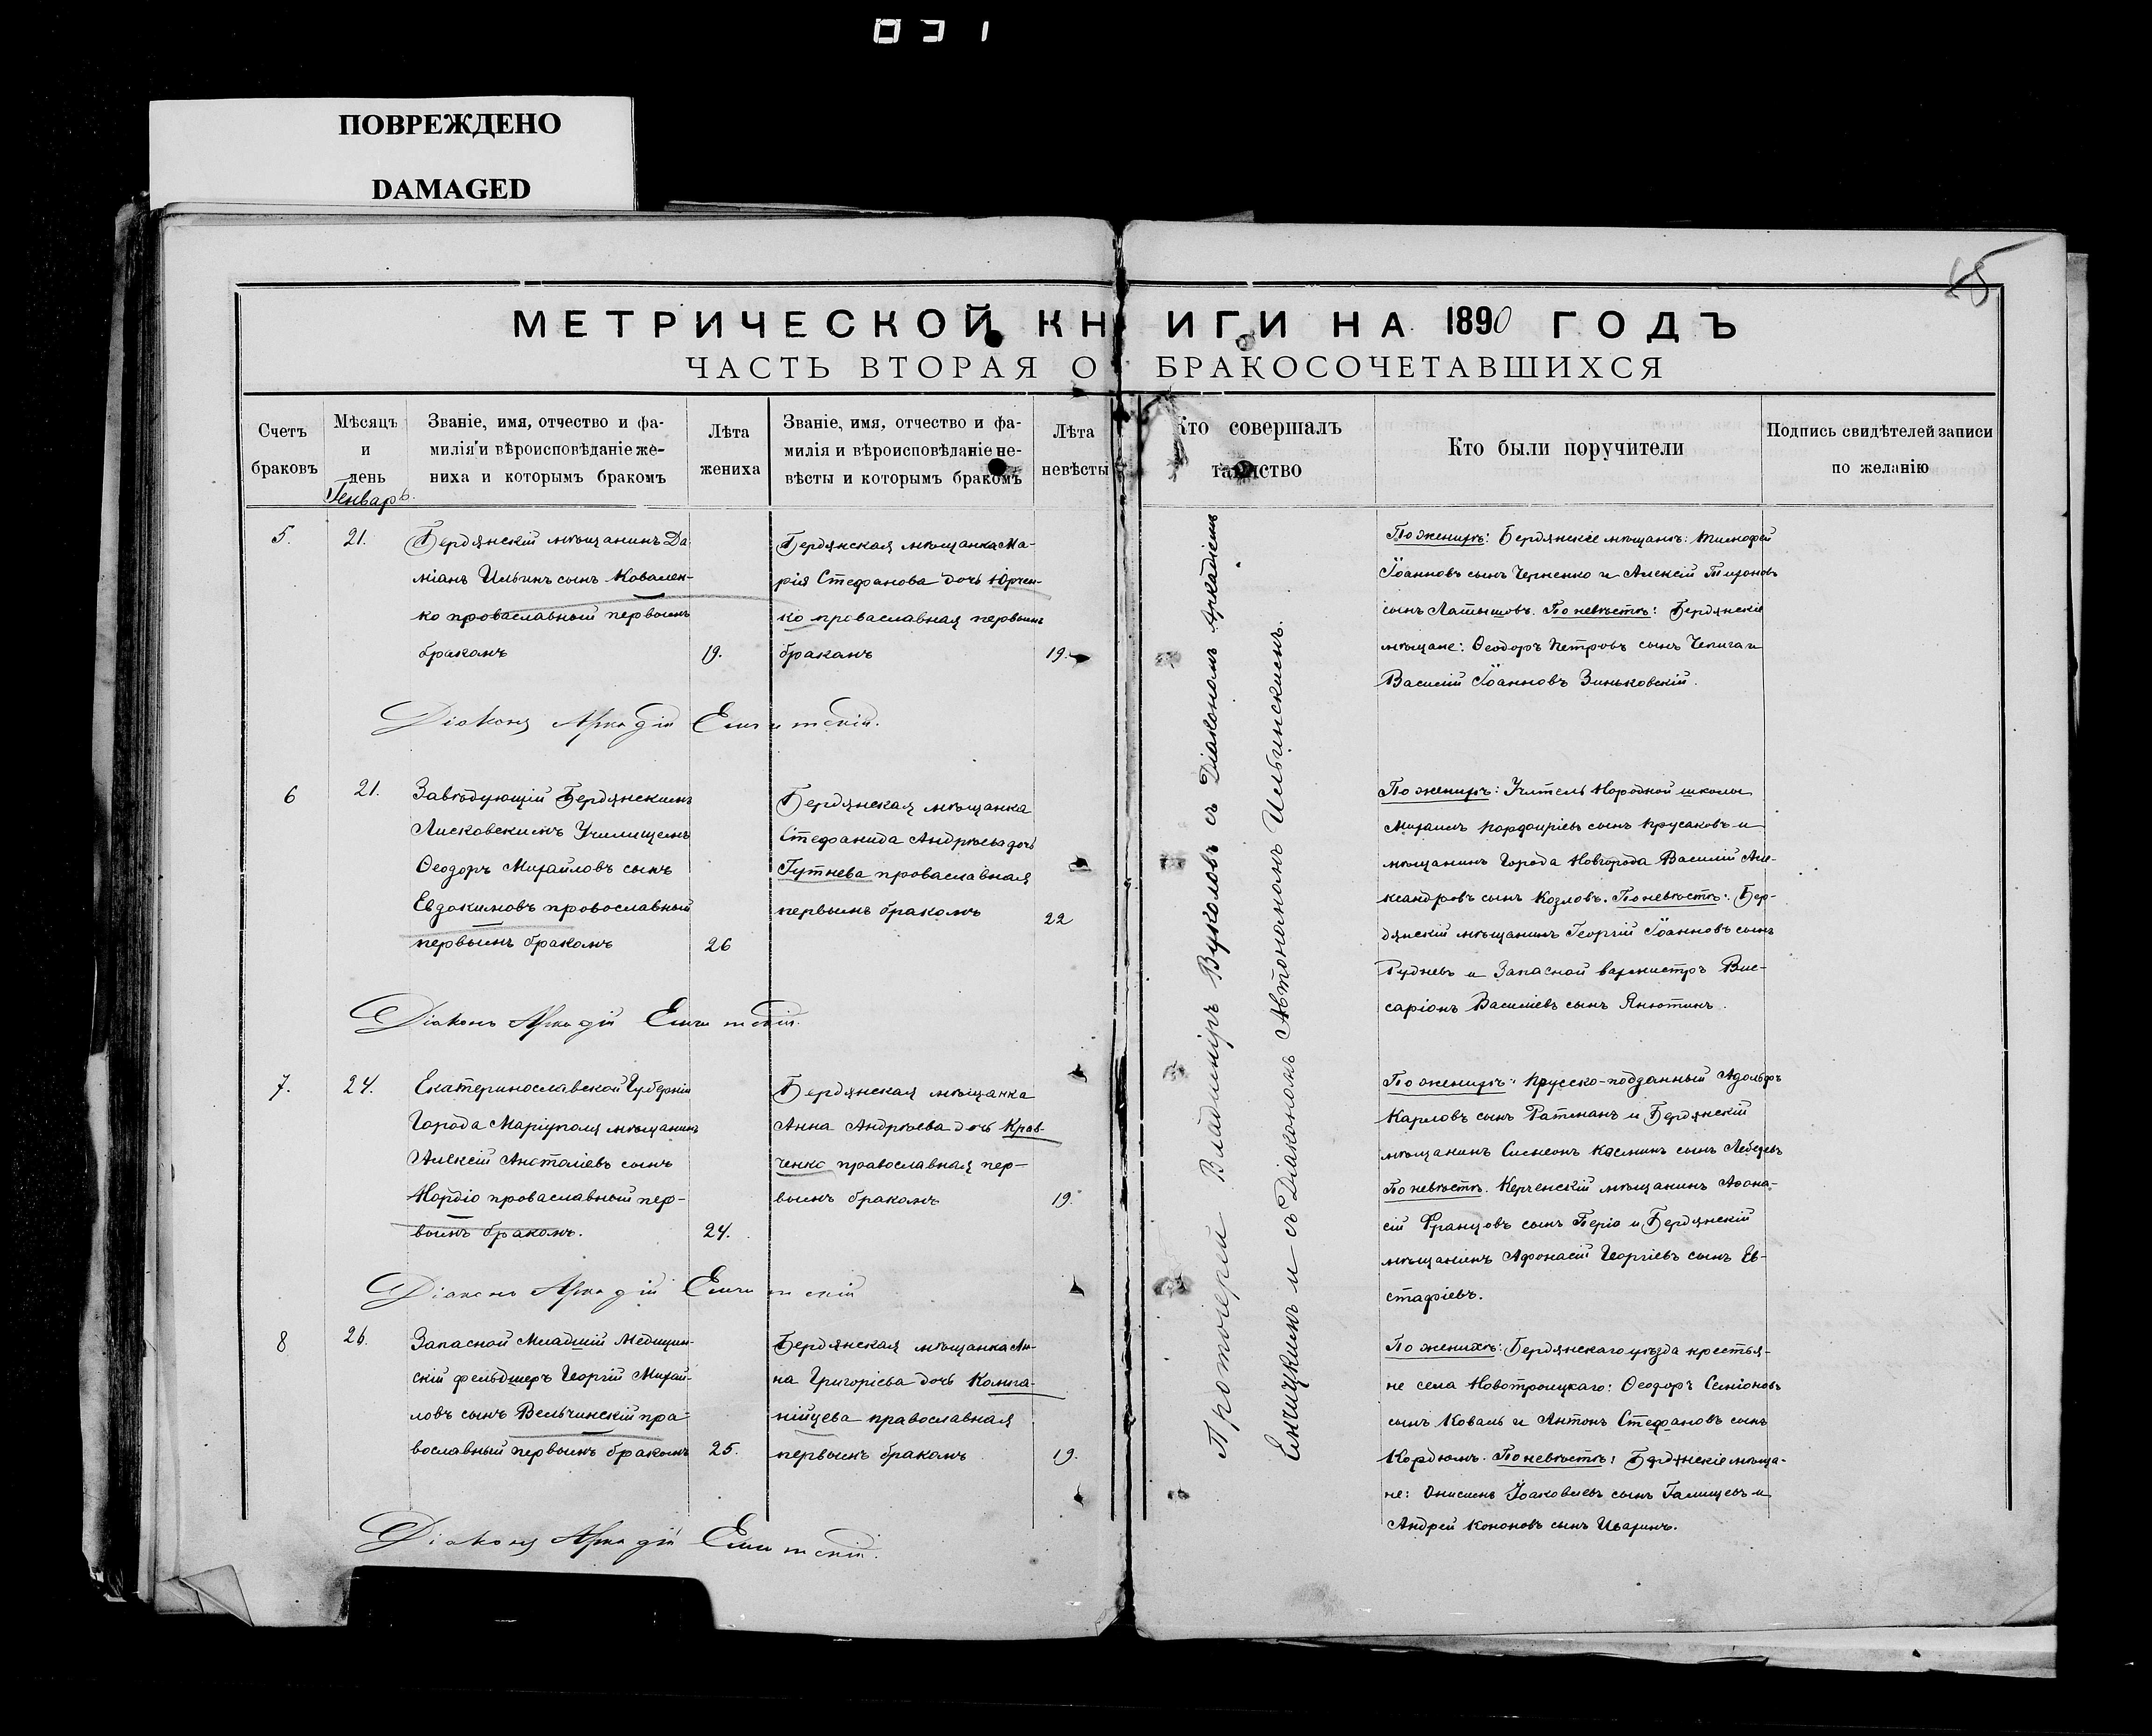 031
ПОВРЕЖДЕНО
DAMAGED
МЕТРИЧЕСКОЙ КНИГИ НА 1890 ГОДЪ
ЧАСТЬ ВТОРАЯ О БРАКОСОЧЕТАВШИХСЯ
Счетъ
браковъ
Мѣсяцъ
и
день
Генварь.
Званіе, имя, отчество и фа-
милія и вѣроисповѣданіе же-
ниха и которымъ бракомъ
Лѣта
жениха
Званіе, имя, отчество и фа-
милія и вѣроисповѣданіе не-
вѣсты и которымъ бракомъ
Лѣта
невѣсты
Кто совершалъ
таинство
Кто были поручители
Подпись свидѣтелей записи
по желанію
5.
21.
Бердянскій мѣщанинъ Да-
міанъ Ильинъ сынъ Ковален-
ко проваславный первымъ
бракомъ
19.
Бердянская мѣщанка Ма-
рія Стефанова дочь Юрчен-
ко проваславная первымъ
бракомъ
19.
По женихѣ: Бердянскіе мѣщанѣ: Тимофей
Іоанновъ сынъ Черненко и Алексій
сынъ Латышовъ. По невѣстѣ: Бердянскіе
мѣщане: Ѳеодоръ Петровъ сынъ Чепига и
Василій Іоанновъ Зиньковскій.
Діаконъ Аркадій
6
21.
Завѣдующій Бердянскимъ
Лисковскимъ Училищемъ
Ѳеодоръ Михайловъ сынъ
Евдокимовъ провославный
первымъ бракомъ
26
Бердянская мѣщанка
Стефанида Андрѣева дочь
Гутнева проваславная
первымъ бракомъ
22
По женихѣ: Учитель Народной школы
Михаилъ Порфиріевъ сынъ Крусаковъ и
мѣщанинъ Города Новгорода Василій Але-
ксандровъ сынъ Козловъ. По невѣстѣ: Бер-
дянскій мѣщанинъ Георгій Іоанновъ сынъ
Рудневъ и Запасной вахмистръ Вис-
саріонъ Василіевъ сынъ Янютинъ.
Діаконъ Аркадій
7.
24.
Екатеринославской Губерніи
Города Маріуполя мѣщанинъ
Алексій Анатоліевъ сынъ
Нордіо проваславный пер-
вымъ бракомъ.
24.
Бердянская мѣщанка
Анна Андрѣева дочь Крав-
ченко православная пер-
вымъ бракомъ
19.
По женихѣ: Прусско-подданный Адольфъ
Карловъ сынъ Ратманъ и Бердянскій
мѣщанинъ Симеонъ сынъ Лебедевъ
По невѣстѣ. Керченскій мѣщанинъ Аѳона-
сій Францовъ сынъ Періо и Бердянскій
мѣщанинъ Афонасій Георгіевъ сынъ Ев-
стафіевъ.
Діаконъ Аркадій
8
26.
Запасной Младшій Медицин-
скій фельдшеръ Георгій Михай-
ловъ сынъ Вельчинскій пра-
вославный первымъ бракомъ
25.
Бердянская мѣщанка Ан-
на Григоріева дочь Компа-
нійцева православная
первымъ бракомъ
19.
По женихѣ: Бердянскаго уѣзда крестья-
не села Новотроицкаго: Ѳеодоръ Симіоновъ
сынъ Коваль и Антонъ Стефановъ сынъ
Кордюмъ. По невѣстѣ: Бердянскіе мѣща-
не: Онисимъ Іоаковлевъ сынъ Галищевъ и
Андрей Кононовъ сынъ Шаринъ.
Діаконъ Аркадій
Протоіерей Владиміръ Вуколовъ съ Діакономъ Аркадіемъ
и съ Діакономъ Автономомъ Ильчинскимъ.